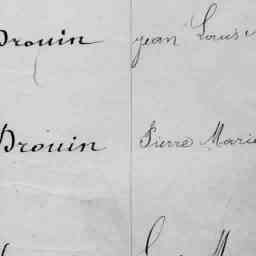 Drouin Jean Louis
Drouin Pierre Marie